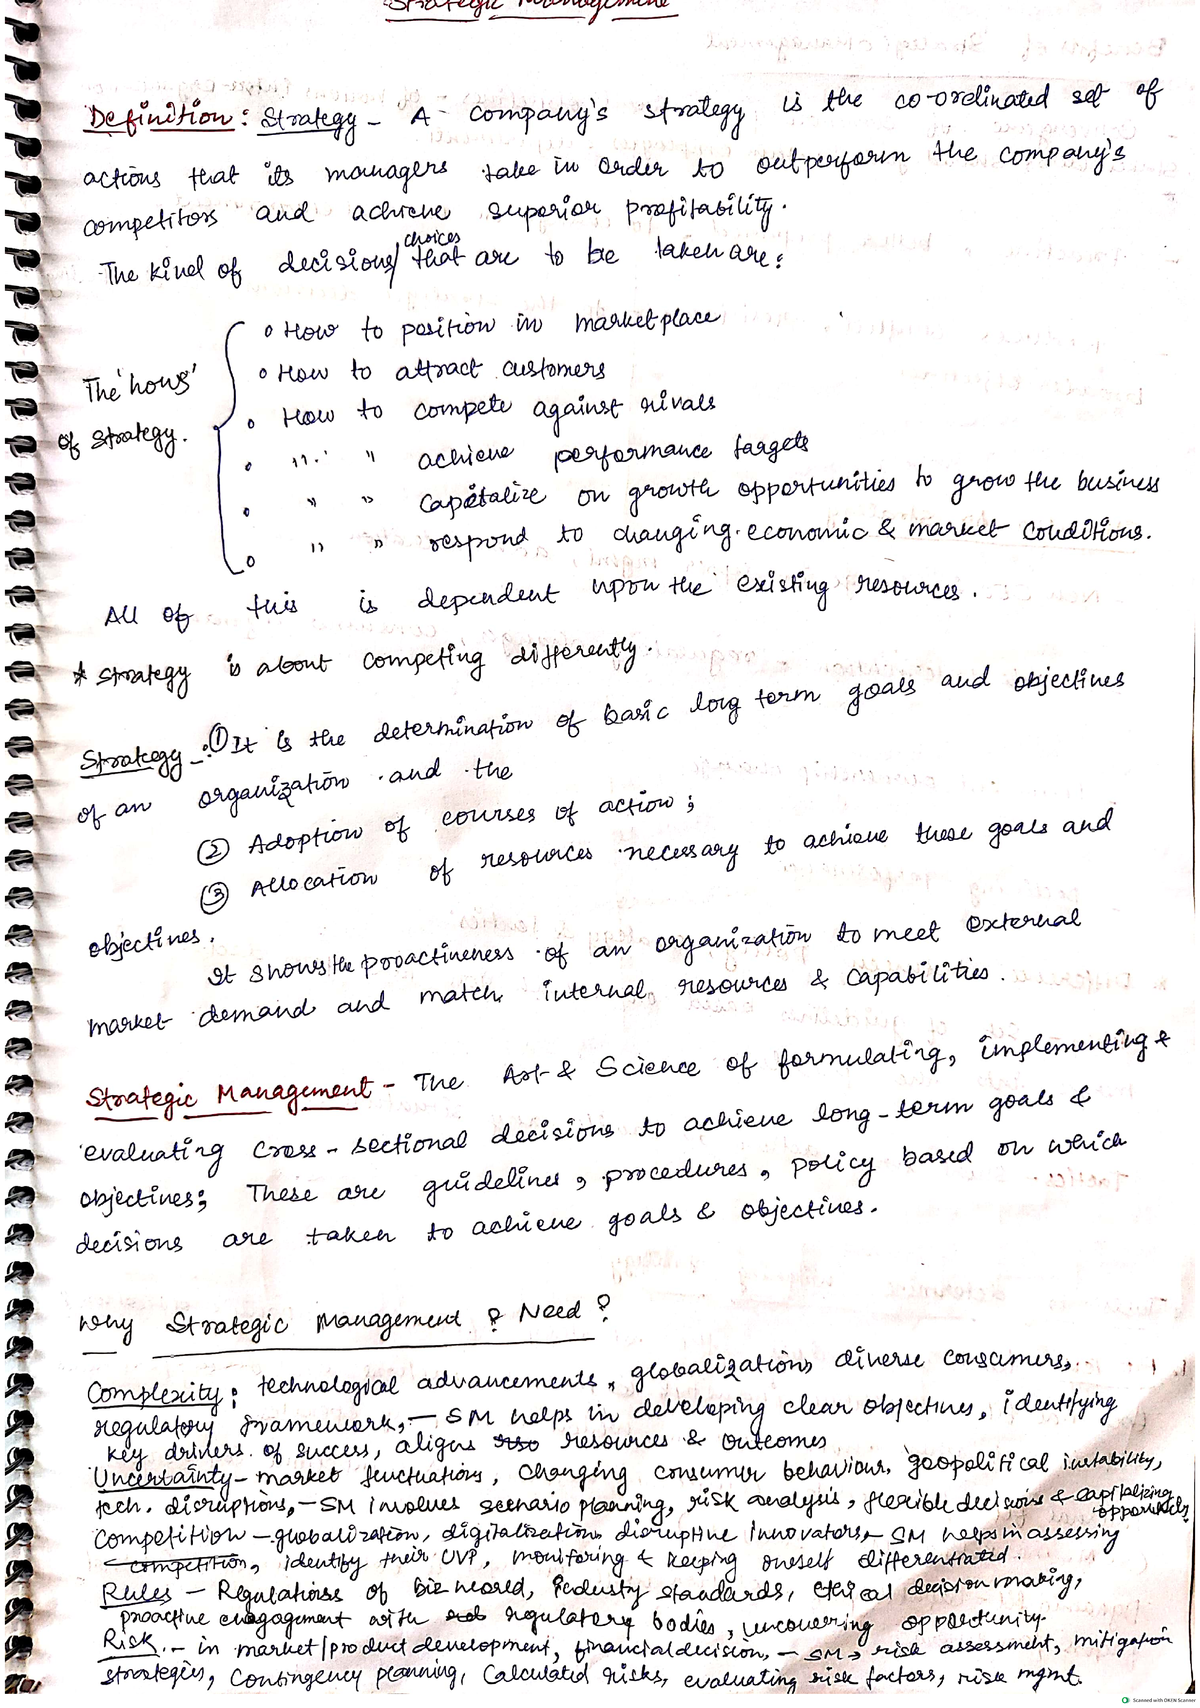 Strategic Management
Definition: Strategy - A company's strategy is the co-ordinated set of
actions that its managers take in order to outperform the company's
competitors and achieve superior profitability.
The kind of decisions/choices that are to be taken are:
The 'hows' of strategy.
• How to position in marketplace
• How to attract customers
• How to compete against rivals
• " " achieve performance targets
• " " Capitalize on growth opportunities to grow the business
• " " respond to changing economic & market conditions.
All of this is dependent upon the existing resources.
* Strategy is about competing differently.
Strategy -: ① It is the determination of basic long term goals and objectives
of an organization and the
② Adoption of courses of action;
③ Allocation of resources necessary to achieve these goals and
objectives.
It shows the proactiveness of an organization to meet external
market demand and match internal resources & capabilities.
Strategic Management - The Art & Science of formulating, implementing &
evaluating cross-sectional decisions to achieve long-term goals &
objectives; These are guidelines, procedures, policy based on which
decisions are taken to achieve goals & objectives.
Why Strategic Management ? Need ?
Complexity: technological advancements, globalization, diverse consumers,
regulatory framework, - SM helps in developing clear objectives, identifying
key drivers of success, aligns resources & outcomes
Uncertainty - market fluctuations, changing consumer behaviour, geopolitical instability,
tech. disruptions, - SM involves scenario planning, risk analysis, flexible decisions & capitalizing opportunities
Competition - globalization, digitalization, disruptive innovators, - SM helps in assessing
competition, identify their UVP, monitoring & keeping oneself differentiated.
Rules - Regulations of biz world, industry standards, ethical decision making,
proactive engagement with regulatory bodies, uncovering opportunity.
Risk - in market/product development, financial decision, - SM → risk assessment, mitigation
strategies, contingency planning, Calculated risks, evaluating risk factors, risk mgmt.
Scanned with OKEN Scanner